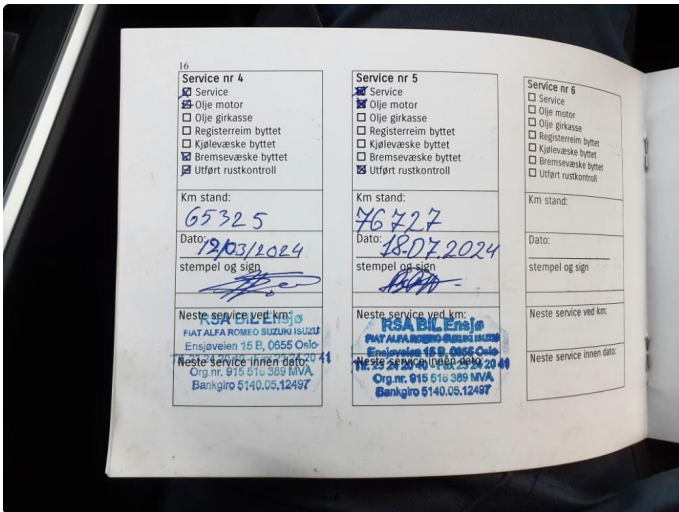 16
Service nr 4
Service
Olje motor
Olje girkasse
Registerreim byttet
Kjølevæske byttet
Bremsevæske byttet
Utført rustkontroll
Km stand:
65325
Dato: 12/03/2024
stempel og sign
Neste service ved km:
RSA BIL Ensjø
FIAT ALFA ROMEO SUZUKI ISUZU
Ensjøveien 15 B, 0655 Oslo
Neste service innen dato:
Org.nr. 915 516 389 MVA
Bankgiro 5140.05.12497
Service nr 5
Service
Olje motor
Olje girkasse
Registerreim byttet
Kjølevæske byttet
Bremsevæske byttet
Utført rustkontroll
Km stand:
76727
Dato: 18.07.2024
stempel og sign
Neste service ved km:
RSA BIL Ensjø
FIAT ALFA ROMEO SUZUKI ISUZU
Ensjøveien 15 B, 0655 Oslo
Tlf. 23 24 20 40 - Fax 23 24 20 41
Neste service innen dato:
Org.nr. 915 516 389 MVA
Bankgiro 5140.05.12497
Service nr 6
Service
Olje motor
Olje girkasse
Registerreim byttet
Kjølevæske byttet
Bremsevæske byttet
Utført rustkontroll
Km stand:
Dato:
stempel og sign
Neste service ved km:
Neste service innen dato: